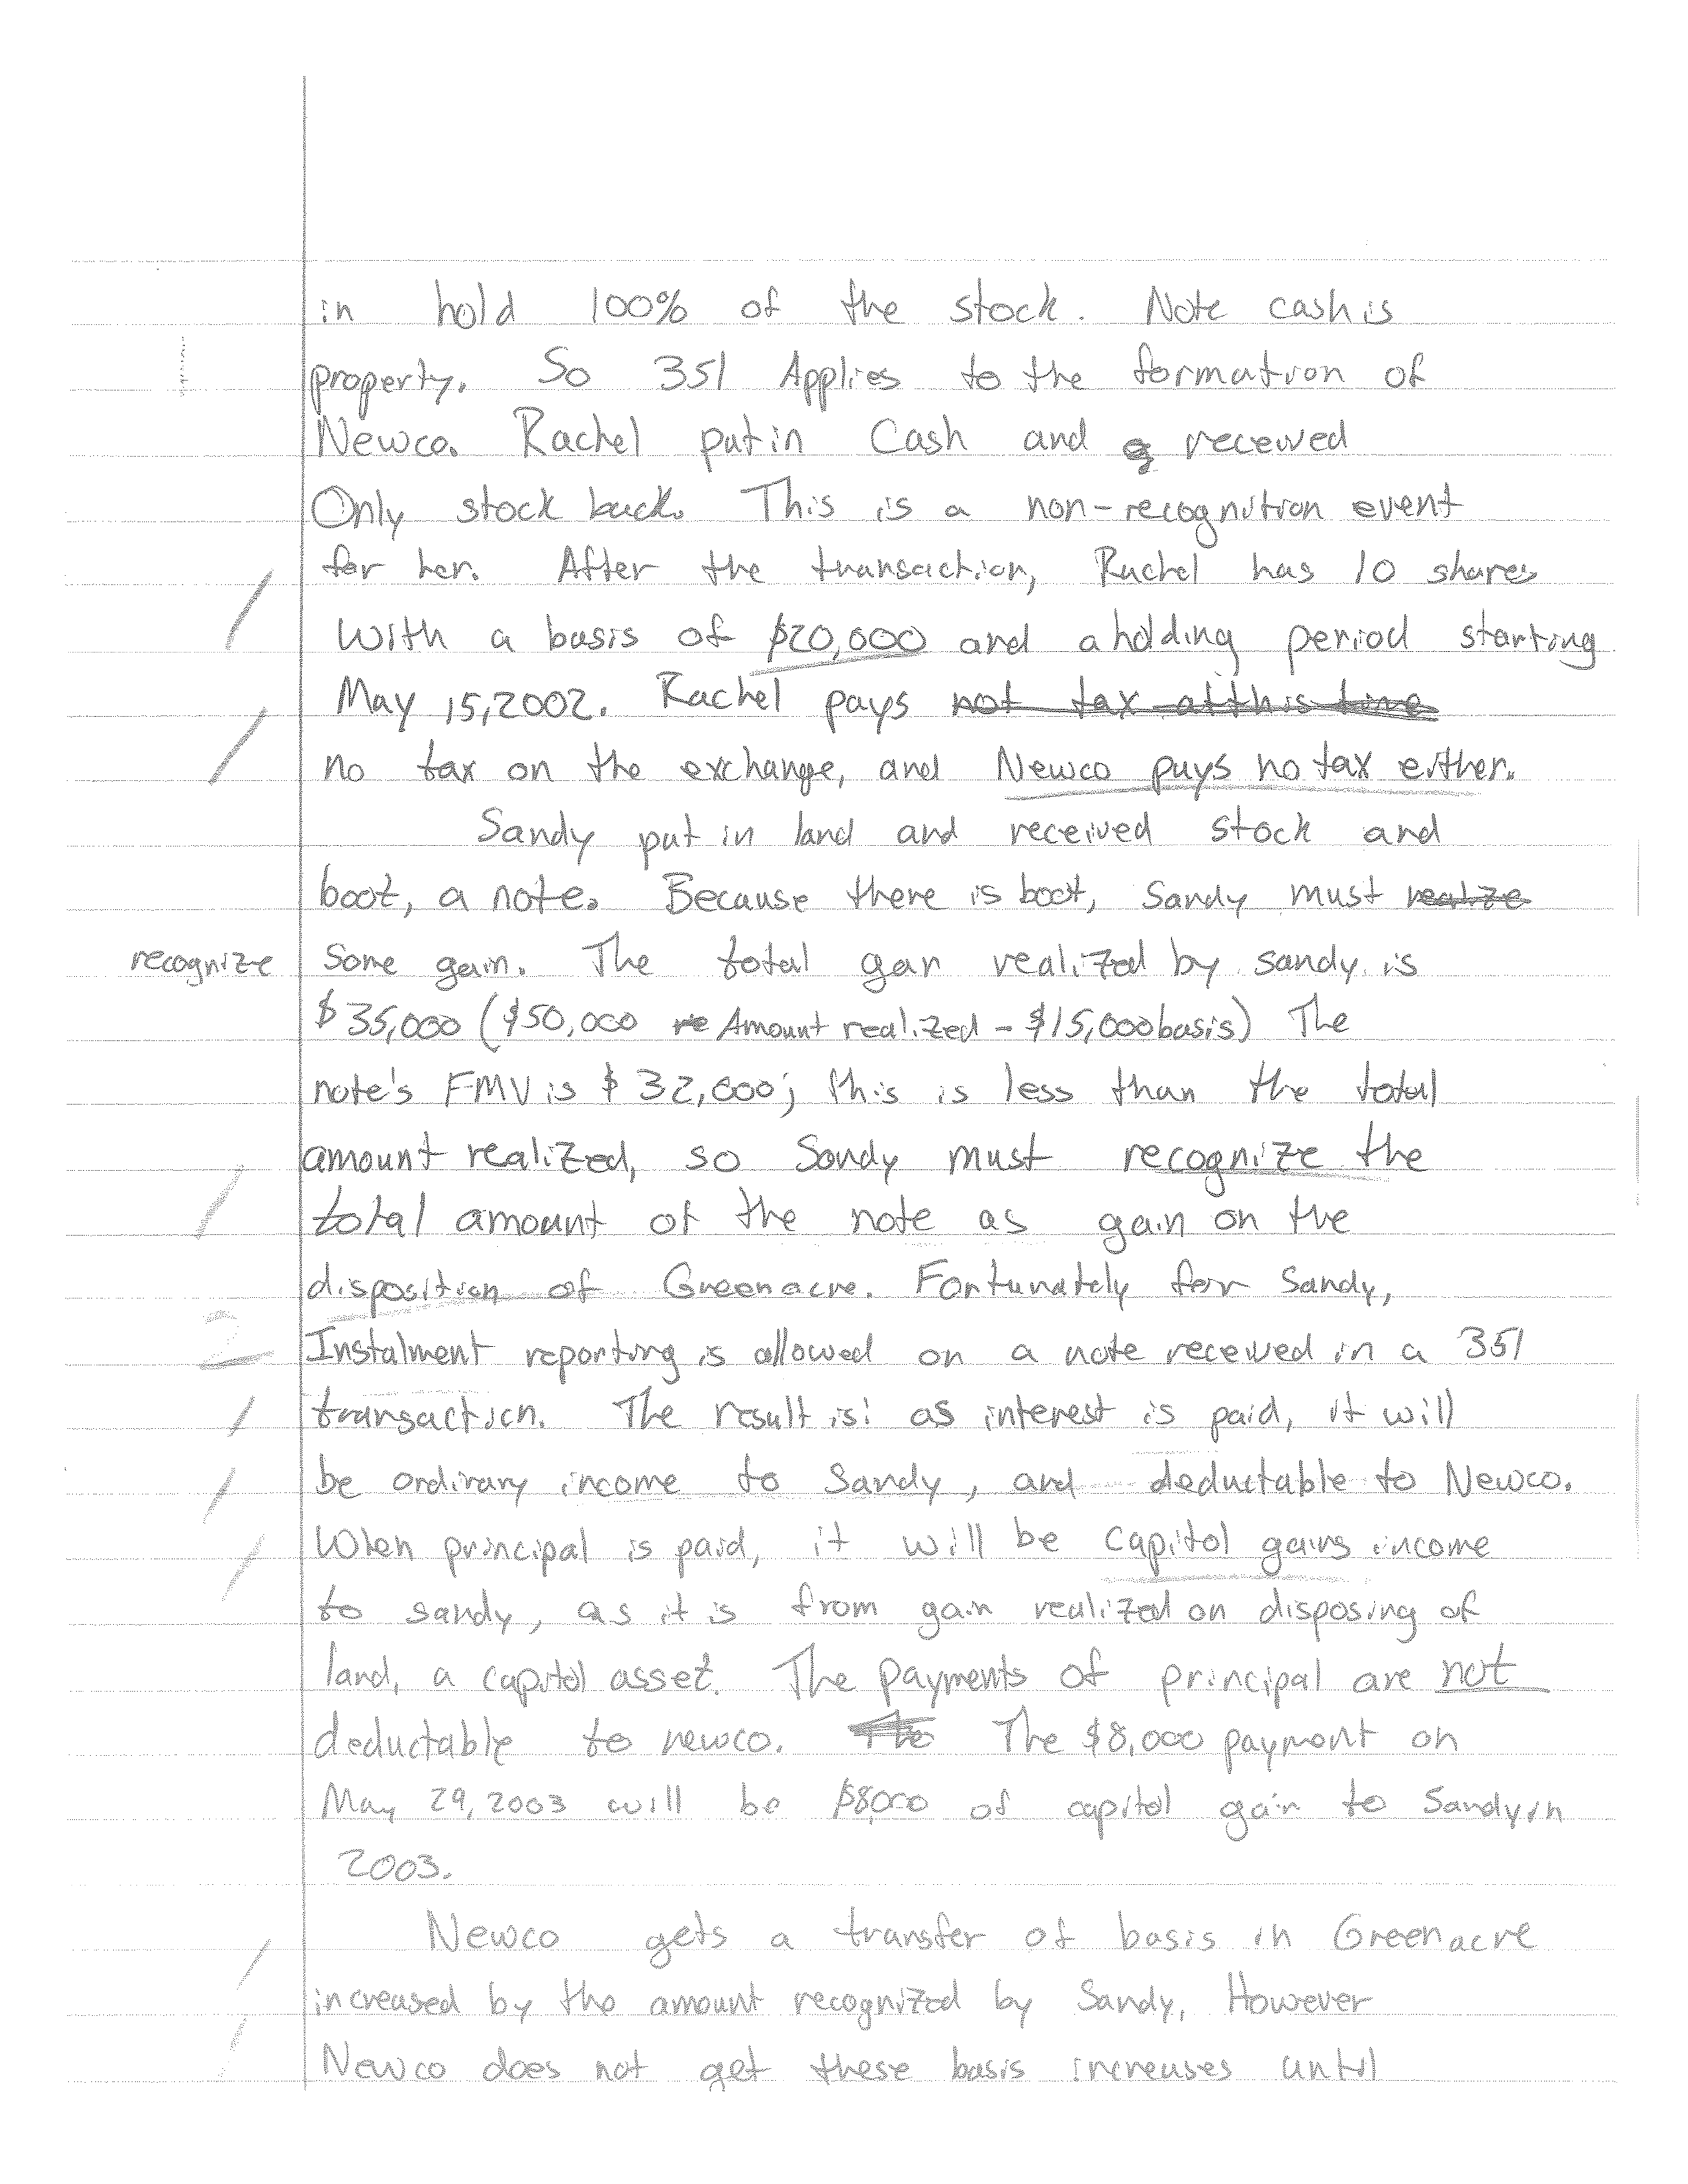 in hold 100% of the stock. Note cash is
property. So 351 Applies to the formation of
Newco. Rachel put in Cash and received
Only stock back. This is a non-recognition event
for her. After the transaction, Rachel has 10 shares
with a basis of $20,000 and a holding period starting
May 15, 2002. Rachel pays not tax at this time
no tax on the exchange, and Newco pays no tax either.
Sandy put in land and received stock and
boot, a note. Because there is boot, Sandy must realize
recognize some gain. The total gain realized by sandy is
$35,000 ($50,000 re Amount realized - $15,000 basis) The
note's FMV is $32,000; this is less than the total
amount realized, so Sandy must recognize the
total amount of the note as gain on the
disposition of Greenacre. Fortunately for Sandy,
2 Instalment reporting is allowed on a note received in a 351
transaction. The result is: as interest is paid, it will
be ordinary income to Sandy, and deductable to Newco.
When principal is paid, it will be capitol gains income
to sandy, as it is from gain realized on disposing of
land, a capitol asset. The payments of principal are not
deductable to newco. The The $8,000 payment on
May 29, 2003 will be $8,000 of capitol gain to Sandy in
2003.
Newco gets a transfer of basis in Greenacre
increased by the amount recognized by Sandy, However
Newco does not get these basis increases until